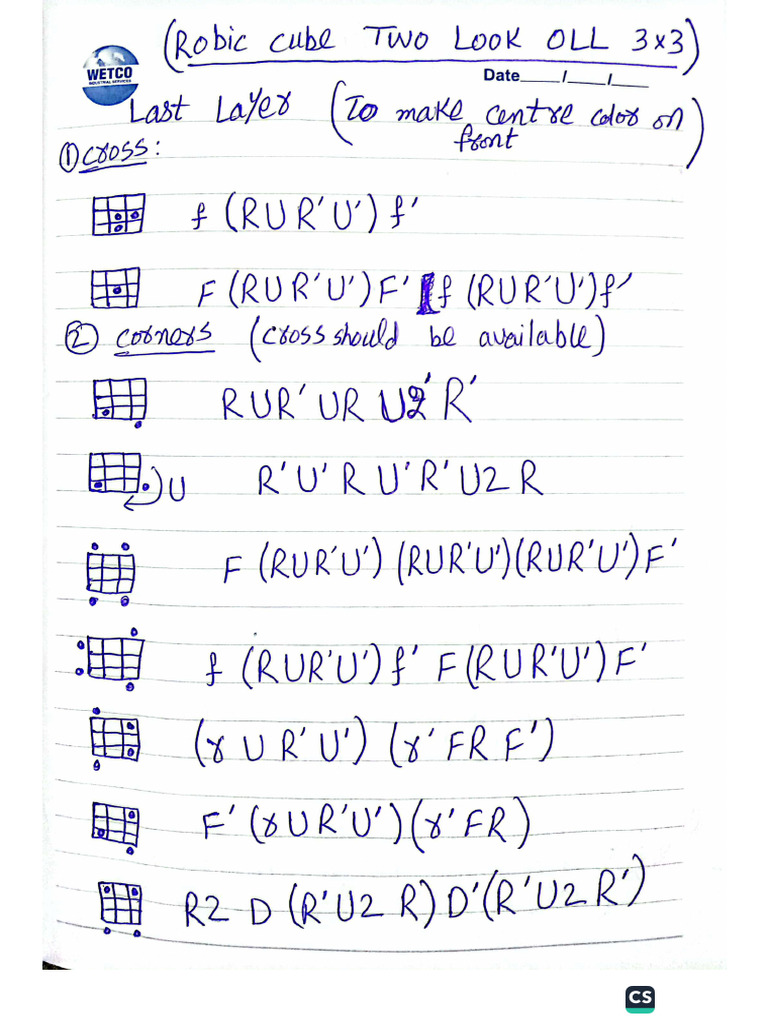 (Robic cube Two Look OLL 3x3)
WETCO
INDUSTRIAL SERVICES
Date____/____/____
Last Layer (To make centre color on front)
① cross:
f (R U R' U') f'
F (R U R' U') F' f (R U R' U') f'
② corners (cross should be available)
R U R' U R U2' R'
U R' U' R U' R' U2 R
F (R U R' U') (R U R' U') (R U R' U') F'
f (R U R' U') f' F (R U R' U') F'
(r U R' U') (r' F R F')
F' (r U R' U') (r' F R)
R2 D (R' U2 R) D' (R' U2 R')
CS